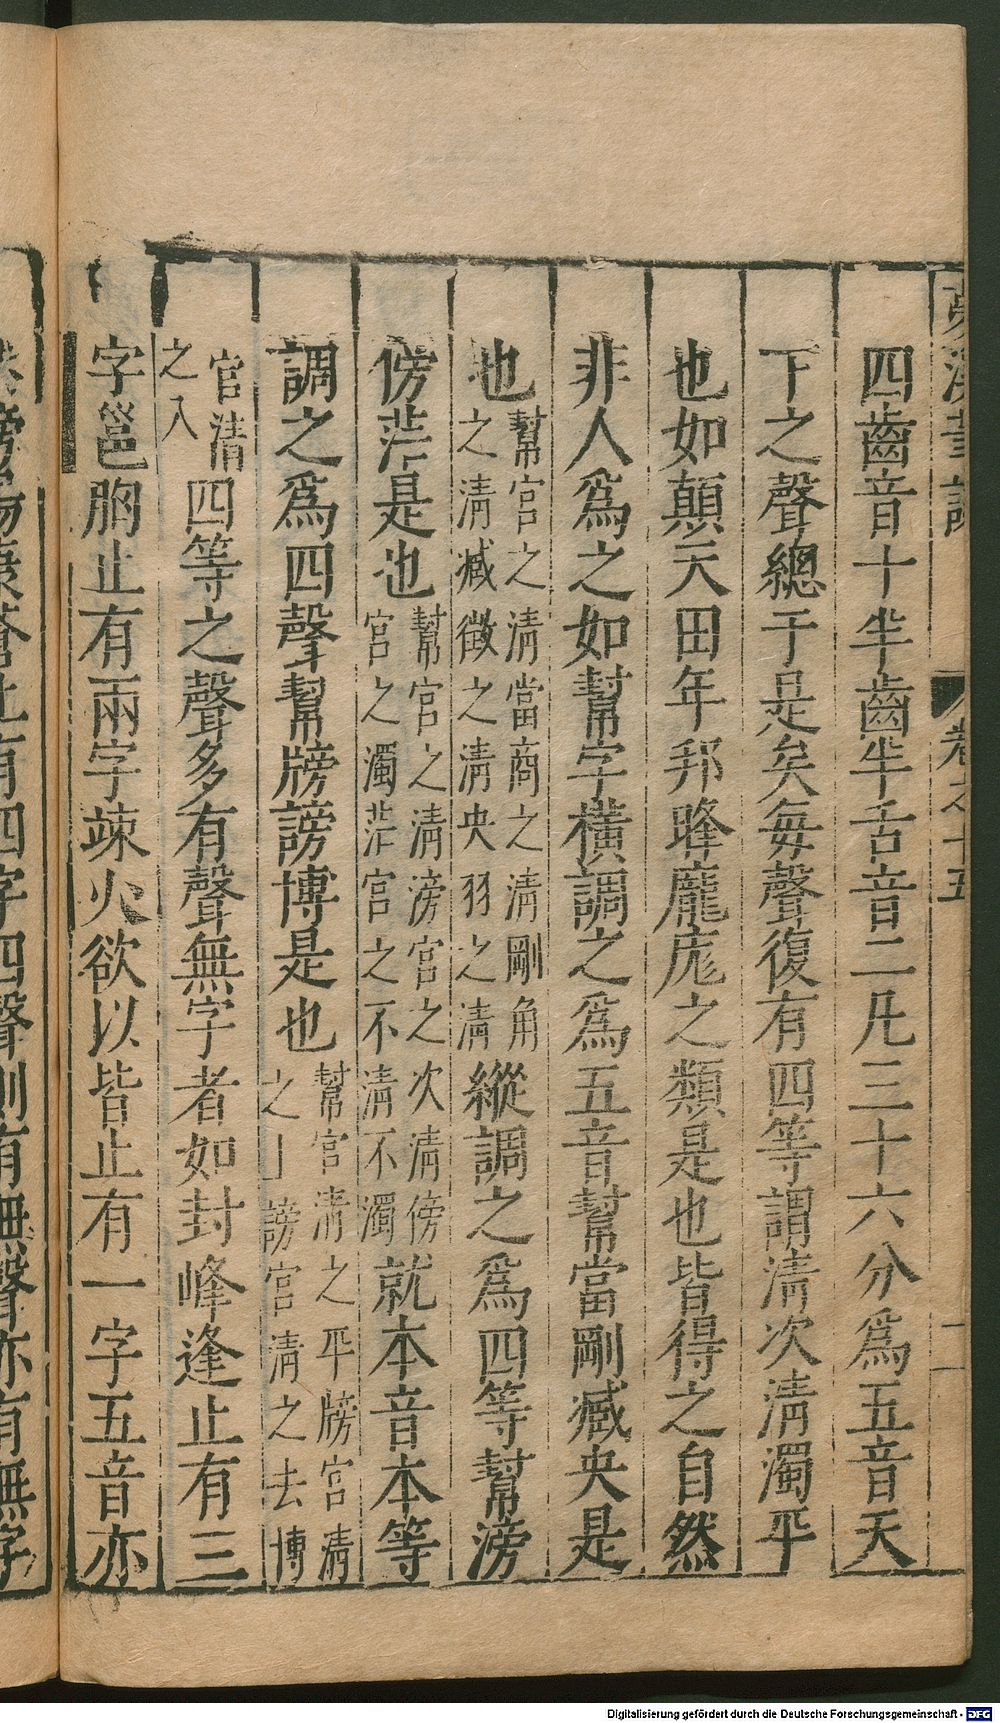 夢溪筆談 卷之十五 二
四齒音十半齒半舌音二凡三十六分爲五音天
下之聲總于是矣每聲復有四等謂淸次淸濁平
也如顛天田年邦𦝫龐厖之類是也皆得之自然
非人爲之如幫字橫調之爲五音幫當剛臧央是
也幫宮之淸當商之淸剛角
之淸臧徵之淸央羽之淸縱調之爲四等幫滂
傍茫是也幫宮之淸滂宮之次淸傍
宮之濁茫宮之不淸不濁就本音本等
調之爲四聲幫牓謗博是也幫宮淸之平牓宮淸
之上謗宮淸之去博
宮淸
之入四等之聲多有聲無字者如封峰逢止有三
字邕胸止有兩字竦火欲以皆止有一字五音亦
四字四聲則有無聲亦有無字
Digitalisierung gefördert durch die Deutsche Forschungsgemeinschaft - DFG